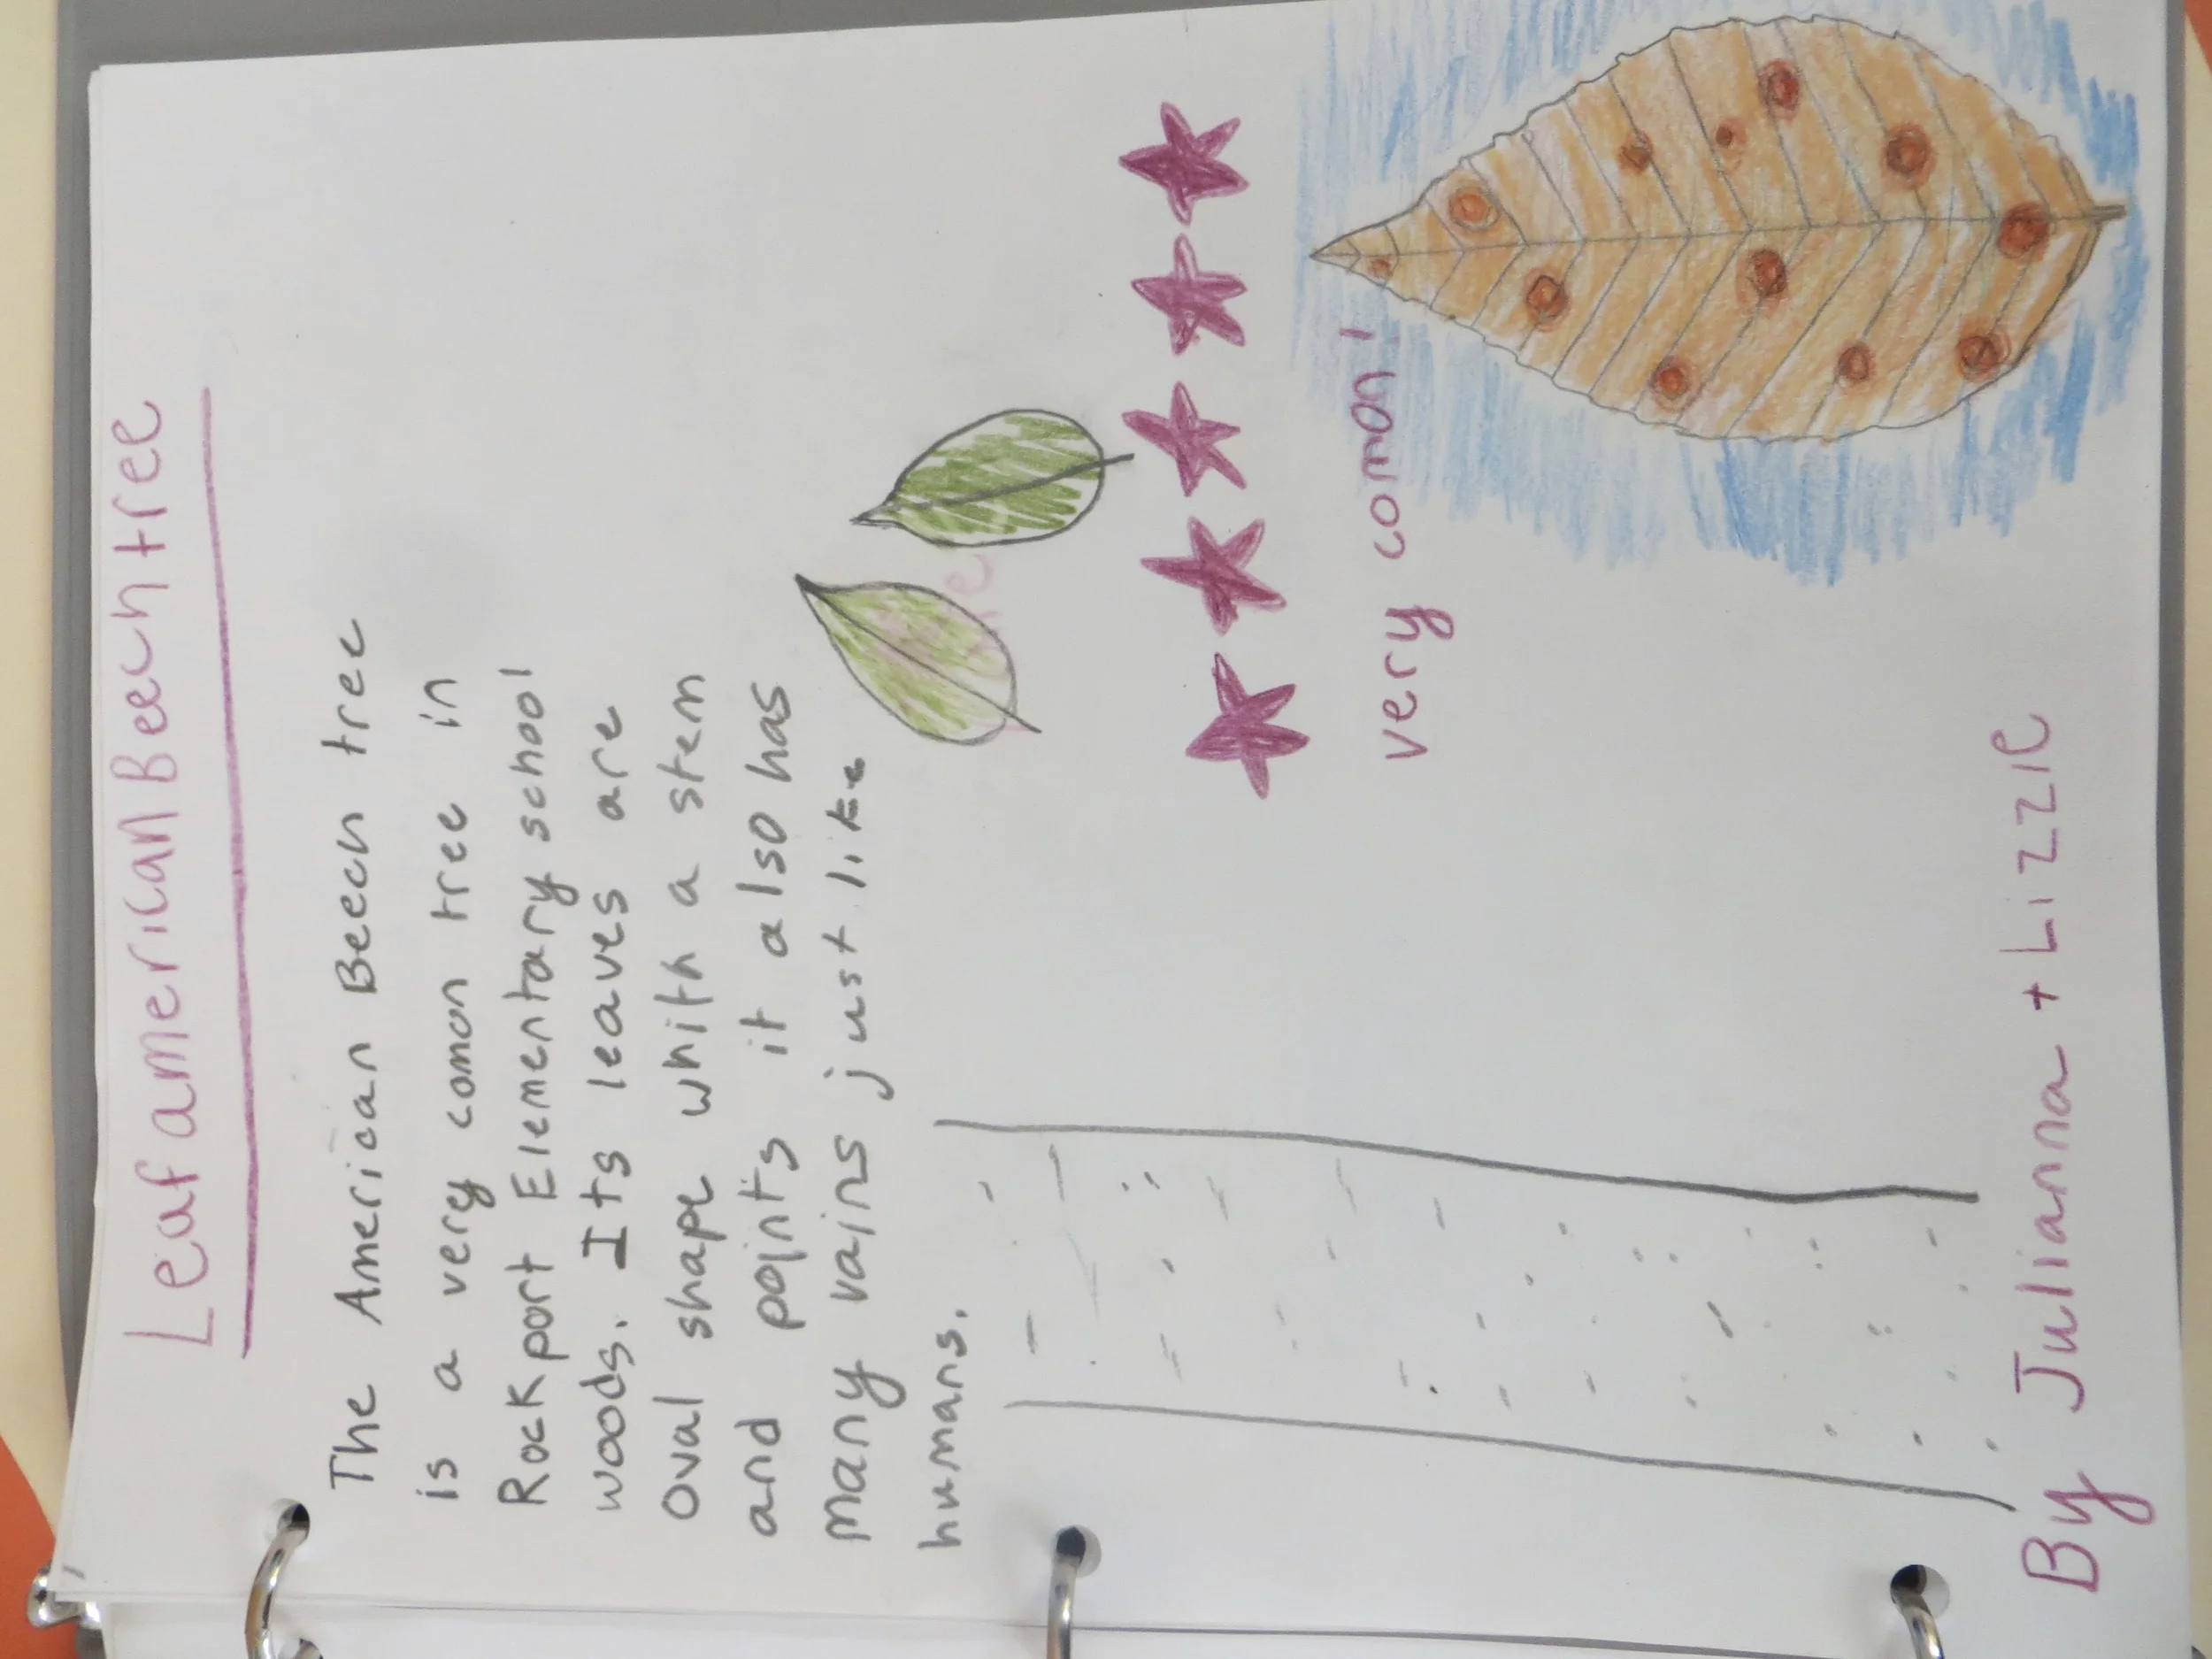 Leaf american Beech tree
The American Beech tree
is a very comon tree in
Rockport Elementary school
woods. Its leaves are
oval shape whith a stem
and points it also has
many vains just like
humans.
very comon!
By Julianna + Lizzie